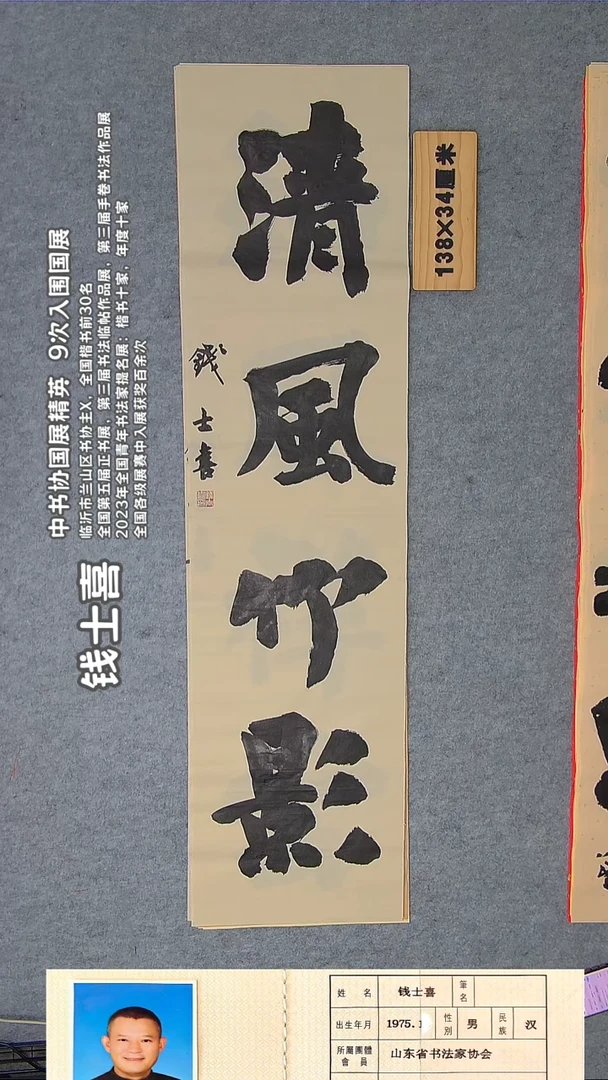 清風竹影
錢士喜
138×34厘米
钱士喜
中书协国展精英 9次入围国展
临沂市兰山区书协主X，全国楷书前30名
全国第五届正书展，第三届书法临帖作品展，第三届手卷书法作品展
2023年全国青年书法家提名展：楷书十家，年度十家
全国各级展赛中入展获奖百余次
姓 名 钱士喜 筆名
出生年月 1975.1 性別 男 民族 汉
所屬團體會員 山东省书法家协会